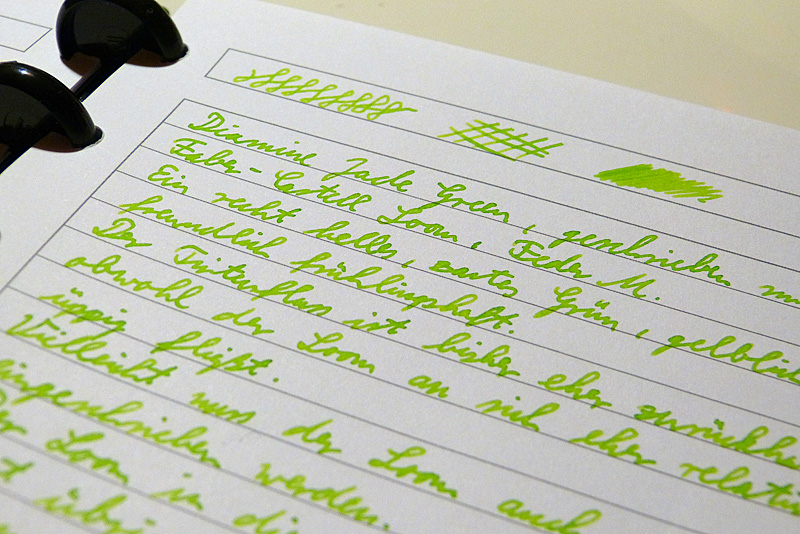 Diamine Jade Green, geschrieben m
Faber-Castell Loom, Feder M.
Ein recht helles, zartes Grün, gelblich
freundlich frühlingshaft.
Der Tintenfluss ist bisher eher zurückha
obwohl der Loom an sich eher relativ
üppig fließt.
Vielleicht muss der Loom auch
eingeschrieben werden.
Der Loom in di